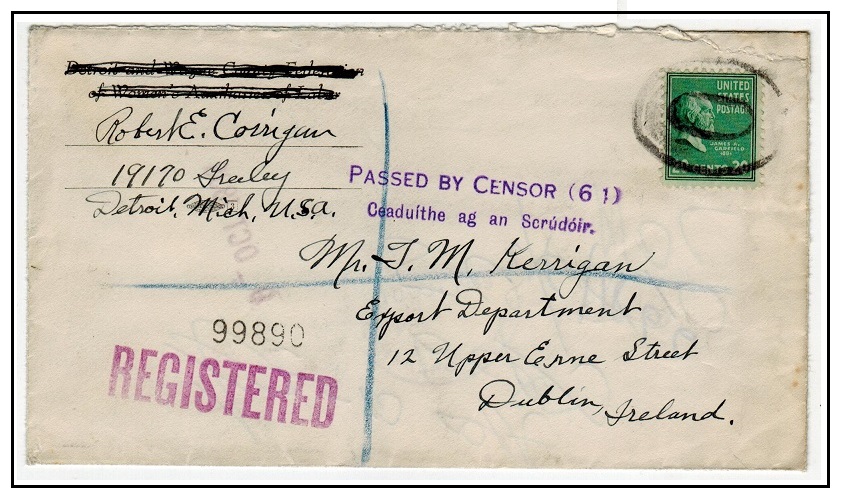 Detroit and Wayne County Federation
of Women's Auxiliaries of Labor
Robert E. Corrigan
19170 Greeley
Detroit, Mich, U.S.A.
UNITED
STATES
POSTAGE
JAMES A.
GARFIELD
CENTS 20
PASSED BY CENSOR (61)
Ceaduíthe ag an Scrúdóir.
Mr. T. M. Kerrigan
Export Department
12 Upper Erne Street
Dublin, Ireland.
OCT
99890
REGISTERED